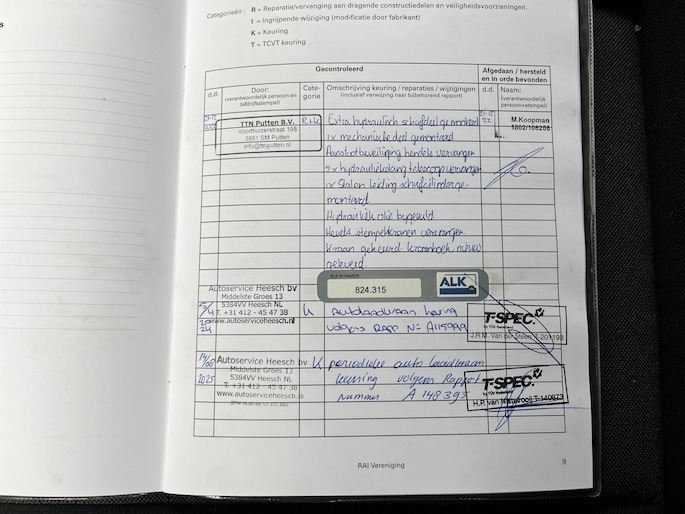 s
Categorieën : R = Reparatie/vervanging aan dragende constructiedelen en veiligheidsvoorzieningen.
I = Ingrijpende wijziging (modificatie door fabrikant)
K = Keuring
T = TCVT keuring
Gecontroleerd
Afgedaan / hersteld en in orde bevonden
d.d.
Door:
(verantwoordelijk persoon en bedrijfsstempel)
Cate-
gorie
Omschrijving keuring / reparaties / wijzigingen
(inclusief verwijzing naar bijbehorend rapport)
d.d.
Naam:
(verantwoordelijk persoon+stempel)
TTN Putten B.V.
Voorthuizerstraat 198
3881 SM Putten
info@ttnputten.nl
R+K
Extra hydraulisch schuifdeel gemonteerd
1x mechanische deel gemonteerd
Aanstootbeveiliging hendels vervangen
2x hydrauliekslang telescoop vervangen
1x stalen leiding schuifcilinder ge-
monteerd
Hydrauliek olie bijgevuld.
Hevels stempelkranen vervangen.
Kraan gekeurd. Kraanboek nieuw
geleverd.
22
M.Koopman
1802/106208
ALK NUMMER
824.315
ALK
Autoservice Heesch bv
Middelste Groes 13
5384VV Heesch NL
T. +31 412 - 45 47 38
www.autoserviceheesch.nl
5/4
2024
K
autolaadkraan keuring
volgens Rapp N= A115999
T-SPEC.
by TÜV Nederland
J.R.M. van der Steen T-201193
14/05
2025
Autoservice Heesch bv
Middelste Groes 13
5384VV Heesch NL
T. +31 412 - 45 47 38
www.autoserviceheesch.nl
K
periodieke auto laadkraan
keuring volgens Rapport
nummer A 148395
T-SPEC.
by TÜV Nederland
H.P. van Nistelrooij T-140873
RAI Vereniging
9